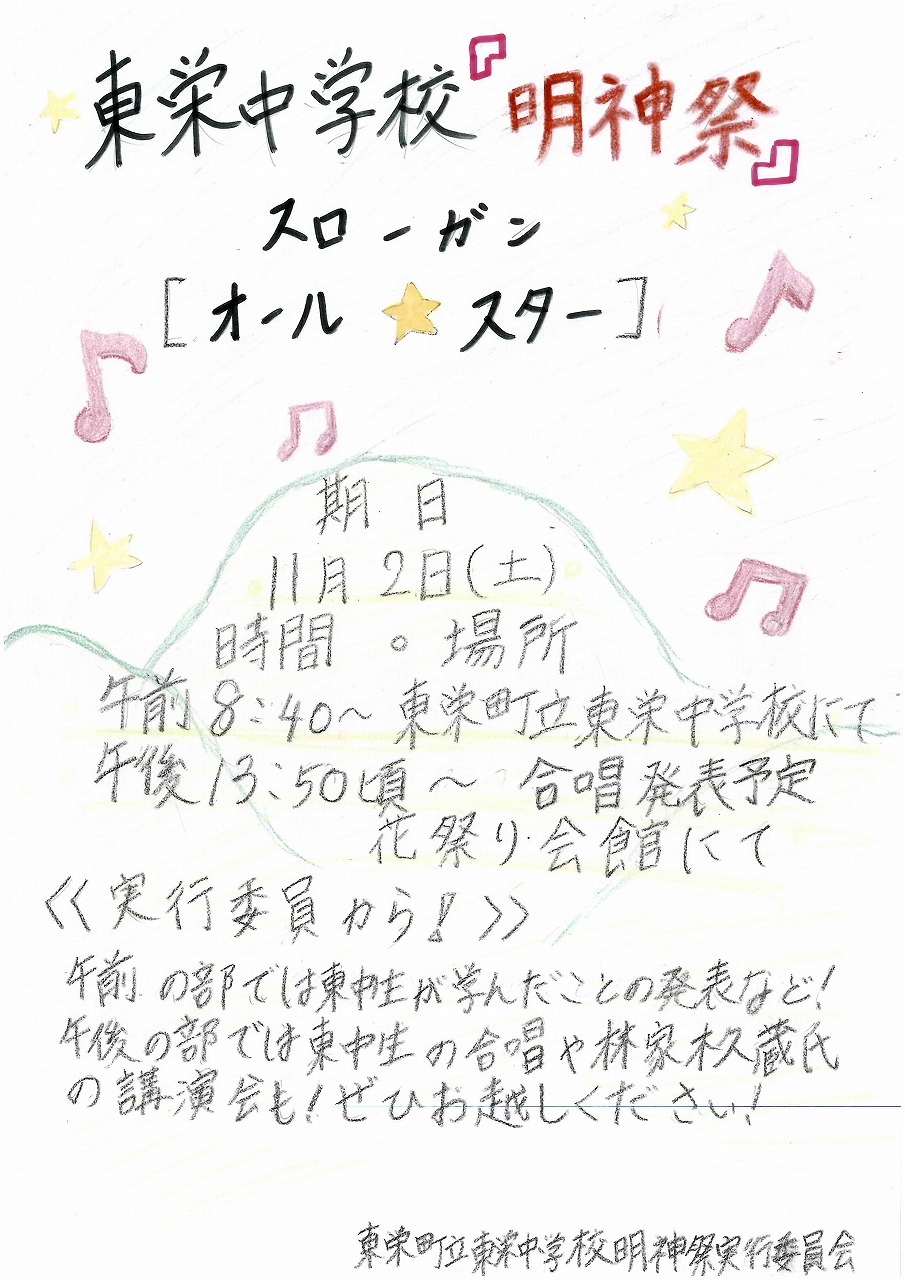 東栄中学校『明神祭』
スローガン
[オール★スター]
期日
11月2日(土)
時間。場所
午前8:40～東栄町立東栄中学校にて
午後13:50頃～ 合唱発表予定
花祭り会館にて
<<実行委員から!>>
午前の部では東中生が学んだことの発表など!
午後の部では東中生の合唱や林家木久蔵氏
の講演会も!ぜひお越しください!
東栄町立東栄中学校明神祭実行委員会